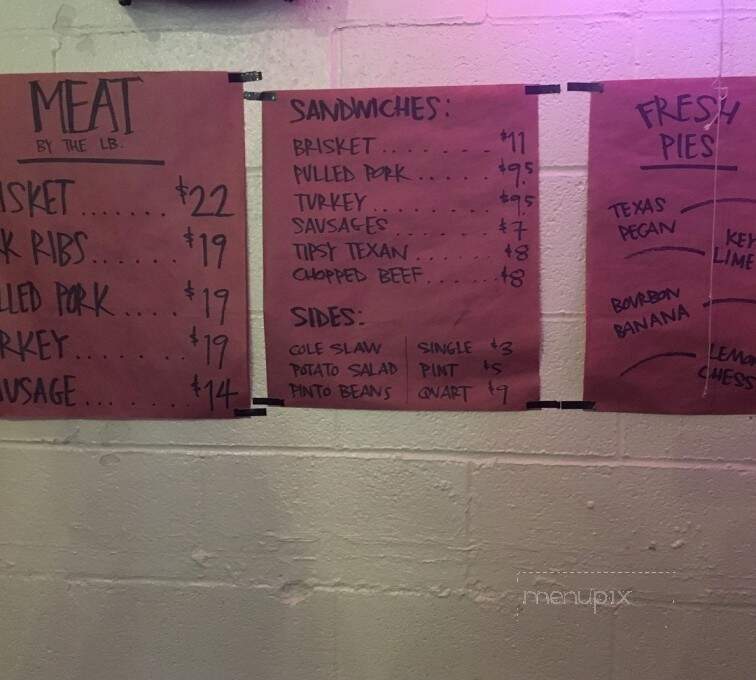 MEAT
BY THE LB.
ISKET ....... $22
K RIBS ...... $19
LLED PORK .... $19
RKEY ....... $19
USAGE ........ $14
SANDWICHES:
BRISKET ........ $11
PULLED PORK ...... $9.5
TURKEY ........ $9.5
SAUSAGES ....... $7
TIPSY TEXAN ..... $8
CHOPPED BEEF ..... $8
SIDES:
COLE SLAW | SINGLE $3
POTATO SALAD | PINT $5
PINTO BEANS | QUART $9
FRESH
PIES
TEXAS
PECAN
KEY
LIME
BOURBON
BANANA
LEMON
CHESS
menupix